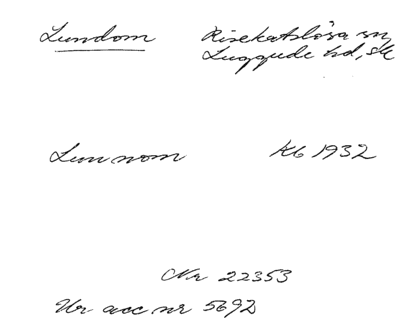 Lundom Risekatslösa sn,
Luggude hd, Sk
Lunnom Kb 1932
Nr 22353
Ur acc nr 5692